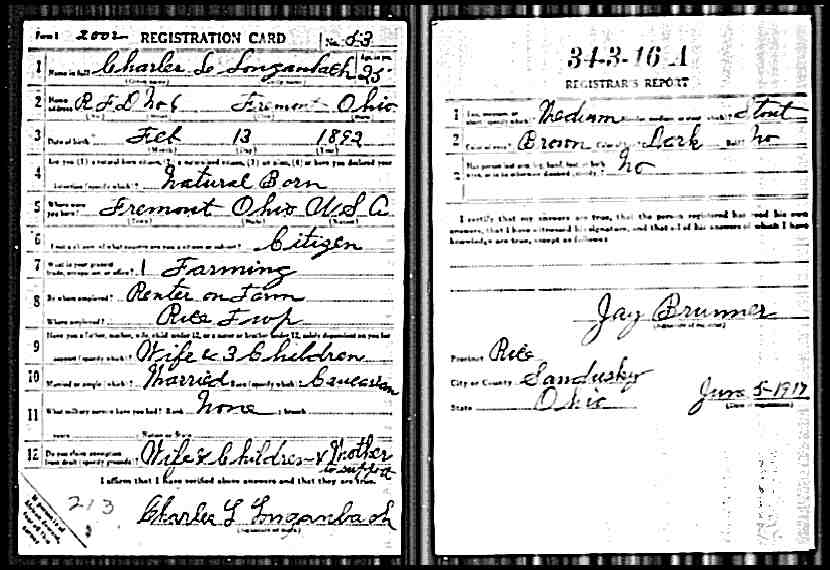 Form 1 2002 REGISTRATION CARD No. 53
1 Name in full Charles L Longanbach Age, in yrs. 25
(Given name) (Family name)
2 Home address R F D No 6 Fremont Ohio
(No.) (Street) (City) (State)
3 Date of birth Feb 13 1892
(Month) (Day) (Year)
4 Are you (1) a natural born citizen, (2) a naturalized citizen, (3) an alien, (4) or have you declared your
intention (specify which)? Natural Born
5 Where were you born? Fremont Ohio U S A
(Town) (State) (Nation)
6 If not a citizen, of what country are you a citizen or subject? Citizen
7 What is your present trade, occupation, or office? Farming
8 By whom employed? Renter on Farm
Where employed? Rice Twp
9 Have you a father, mother, wife, child under 12, or a sister or brother under 12, solely dependent on you for
support (specify which)? Wife & 3 Children
10 Married or single (which)? Married Race (specify which)? Caucasian
11 What military service have you had? Rank None ; branch
years ; Nation or State
12 Do you claim exemption from draft (specify grounds)? Wife & Children & Mother
to support
I affirm that I have verified above answers and that they are true.
213
Charles L Longanbach
(Signature or mark)
34-3-16 A
REGISTRAR'S REPORT
1 Tall, medium, or short (specify which)? Medium Slender, medium, or stout (which)? Stout
2 Color of eyes? Brown Color of hair? Dark Bald? No
3 Has person lost arm, leg, hand, foot, or both
eyes, or is he otherwise disabled (specify)? No
I certify that my answers are true, that the person registered has read his own
answers, that I have witnessed his signature, and that all of his answers of which I have
knowledge are true, except as follows:
Jay Brunner
(Signature of registrar)
Precinct Rice
City or County Sandusky
State Ohio June 5-1917
(Date of registration)